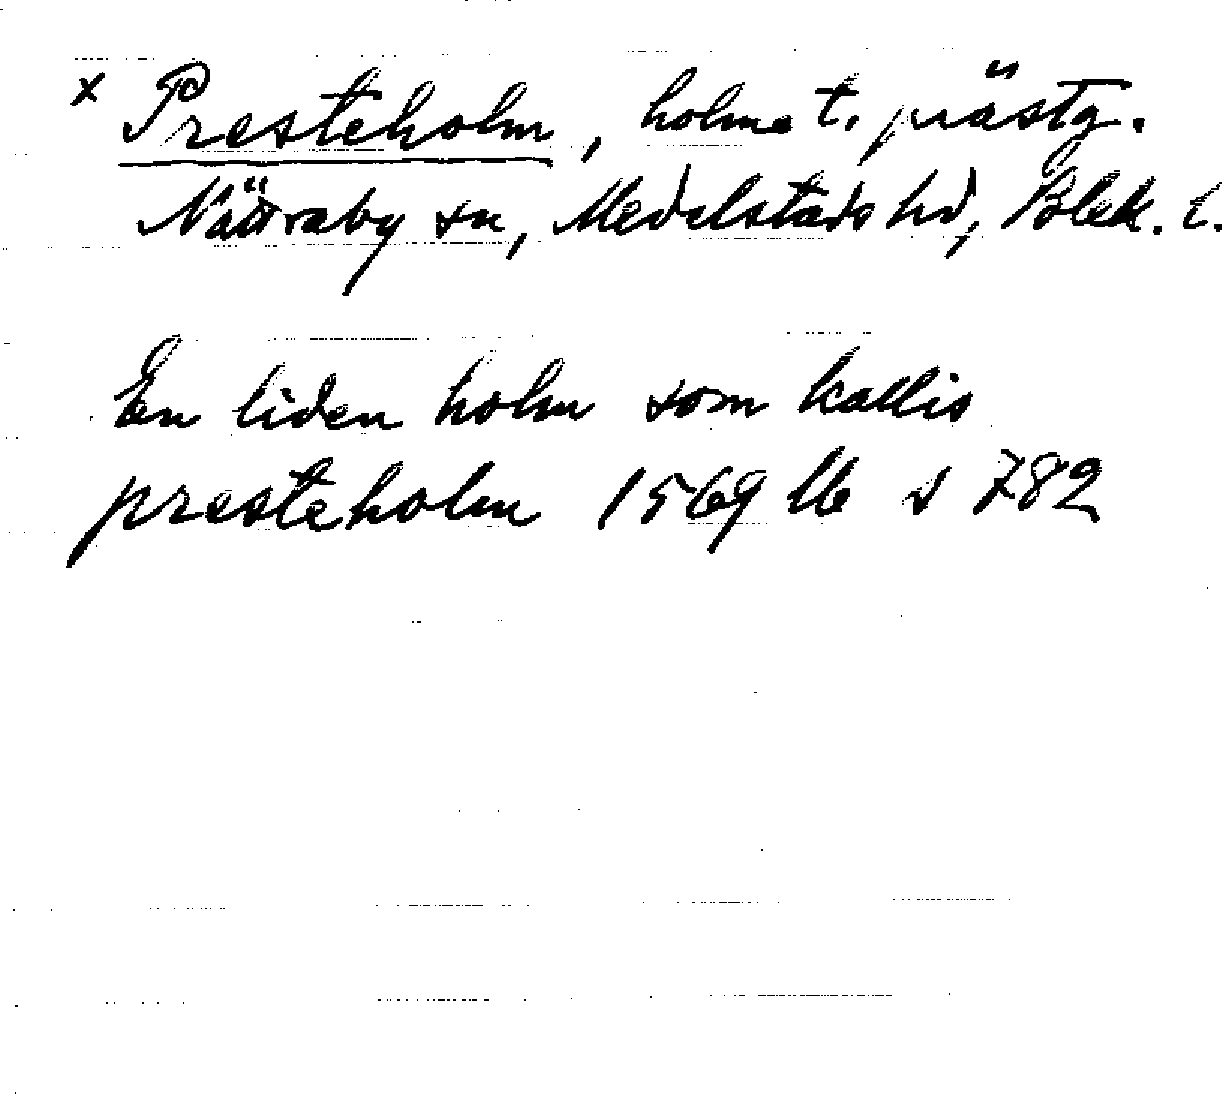 x Presteholm, holme t. prästg.
Nättraby sn, Medelstads hd, Blek. l.
En liden holm som kallis
presteholm 1569 lb s 782